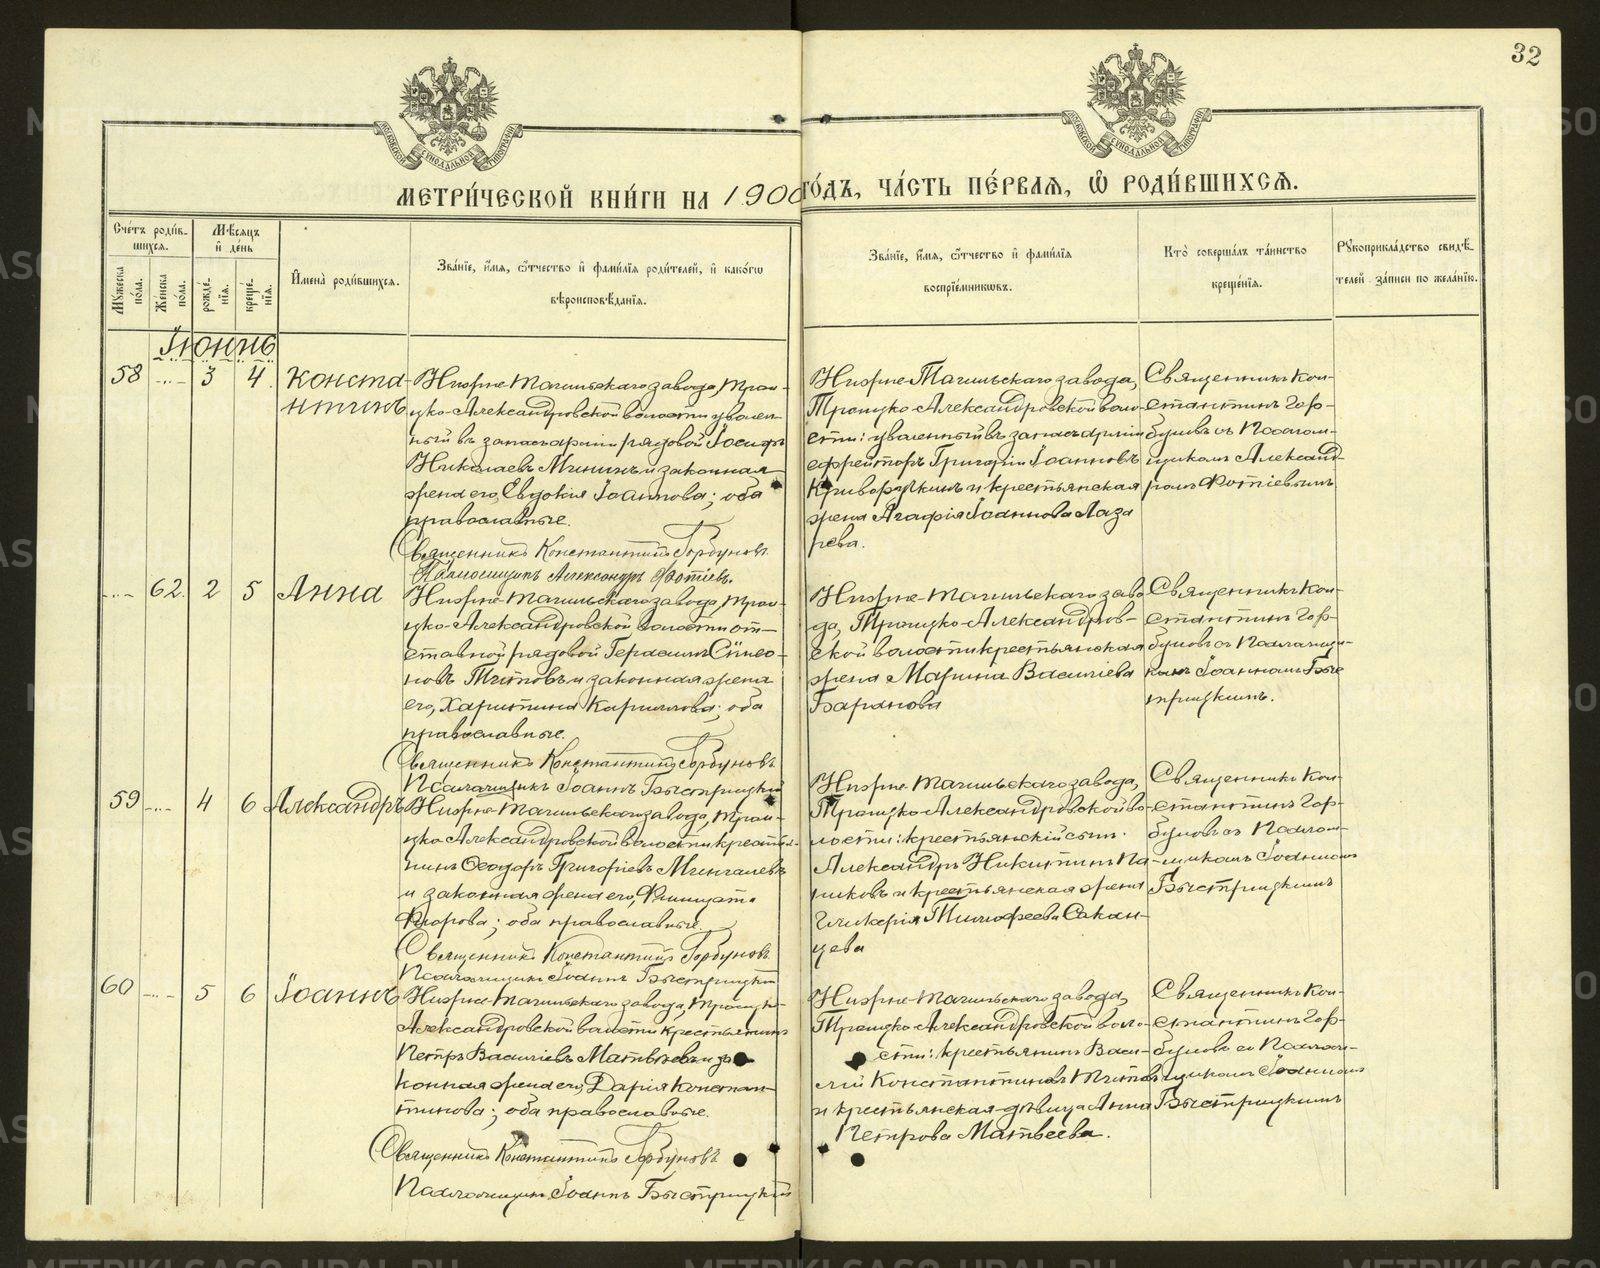 32
МОСКОВСКОЙ СѴНОДАЛЬНОЙ ТИПОГРАФІИ
МОСКОВСКОЙ СѴНОДАЛЬНОЙ ТИПОГРАФІИ
МЕТРИ́ЧЕСКОЙ КНИ́ГИ НА 1900 ГО́ДЪ, ЧА́СТЬ ПЕ́РВАѦ, Ѡ҆ РОДИ́ВШИХСѦ.
Сче́тъ роди́в-
шихсѧ.
Мꙋ́жеска по́ла.
Же́нска по́ла.
Мѣ́сѧцъ
и҆ де́нь
рожде́-
нїѧ.
креще́-
нїѧ.
И҆мена̀ роди́вшихсѧ.
Зва́нїе, и҆́мѧ, ѻ҆́тчество и҆ фами́лїѧ роди́телей, и҆ како́гѡ
вѣроисповѣ́данїѧ.
Зва́нїе, и҆́мѧ, ѻ҆́тчество и҆ фами́лїѧ
воспрїе́мникѡвъ.
Кто̀ соверша́лъ та́инство
креще́нїѧ.
Рꙋкоприкла́дство свидѣ́-
телей за́писи по жела́нїю.
Іюнь
58 3 4. Конста-
нтинъ
Нижне-Тагильскаго завода, Трои-
цко-Александровской волости уволен-
ный въ запасъ арміи рядовой Іосифъ
Николаевъ Мининъ и законная
жена его, Евдокія Іоаннова; оба
православные.
Священникъ Константинъ Горбуновъ
Псаломщикъ Александръ Фотіевъ.
Нижне-Тагильскаго завода,
Троицко-Александровской воло-
сти: уволенный въ запасъ арміи
ефрейторъ Григорій Іоанновъ
Криворучкинъ и крестьянская
жена Агафія Іоаннова Лаза
рева.
Священникъ Кон-
стантинъ Гор-
буновъ съ Псалом-
щикомъ Александ-
ромъ Фотіевымъ
62. 2 5 Анна
Нижне-Тагильскаго завода, Трои-
цко-Александровской волости от-
ставной рядовой Герасимъ Симео-
новъ Титовъ и законная жена
его, Харитина Кириллова; оба
православные.
Священникъ Константинъ Горбуновъ
Псаломщикъ Іоаннъ Быстрицкій
Нижне-Тагильскаго заво
да, Троицко-Александров-
ской волости крестьянская
жена Марина Васильева
Баранова
Священникъ Кон-
стантинъ Гор-
буновъ съ Псаломщи-
комъ Іоанномъ Бы
трицкимъ.
59 4 6 Александръ
Нижне-Тагильскаго завода, Трои-
цко-Александровской волости крестья-
нинъ Ѳеодоръ Григорьевъ Мингалевъ
и законная жена его, Фиицата
Егорова; оба православные.
Священникъ Константинъ Горбуновъ
Псаломщикъ Іоаннъ Быстрицкій
Нижне-Тагильскаго завода,
Троицко-Александровской во-
лости: крестьянскій сынъ
Александръ Никитинъ Па-
шковъ и крестьянская жена
Гликерія Тимофеева Сакан-
цева
Священникъ Кон-
стантинъ Гор-
буновъ съ Псалом-
щикомъ Іоанномъ
Быстрицкимъ
60 5 6 Іоаннъ
Нижне-Тагильскаго завода, Троицко-
Александровской волости крестьянинъ
Петръ Васильевъ Матвѣевъ и за-
конная жена его, Дарія Констан-
тинова; оба православные.
Священникъ Константинъ Горбуновъ
Псаломщикъ Іоаннъ Быстрицкій
Нижне-Тагильскаго завода,
Троицко-Александровской воло-
сти: крестьянинъ Васи-
лій Константиновъ Титовъ
и крестьянская дѣвица Анна
Петрова Матвеева.
Священникъ Кон-
стантинъ Гор-
буновъ съ Псалом-
щикомъ Іоанномъ
Быстрицкимъ